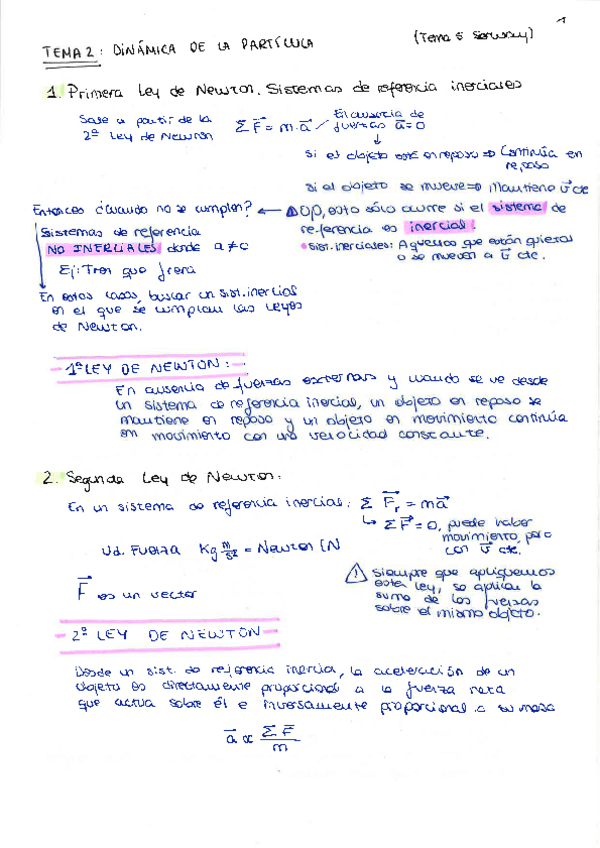 1
TEMA 2: DINÁMICA DE LA PARTÍCULA (Tema 5 Serway)
1. Primera Ley de Newton. Sistemas de referencia inerciales
Sale a partir de la
2ª Ley de Newton
Σ F⃗ = m·a⃗ / En ausencia de
fuerzas a⃗=0
↓
Si el objeto está en reposo ⇒ Continúa en
reposo
Si el objeto se mueve ⇒ Mantiene v⃗ cte
Entonces ¿Cuando no se cumplen? ← ⚠ OJO, esto sólo ocurre si el sistema de
referencia es inercial.
Sistemas de referencia
NO INERCIALES donde a ≠ c
• Sist. inerciales: Aquellos que están quietos
o se mueven a v⃗ cte.
Ej: Tren que frena
En estos casos, buscar un sist. inercias
en el que se cumplan las leyes
de Newton.
- 1ª LEY DE NEWTON: -
En ausencia de fuerzas externas y cuando se ve desde
un sistema de referencia inercial, un objeto en reposo se
mantiene en reposo y un objeto en movimiento continúa
en movimiento con una velocidad constante.
2. Segunda Ley de Newton:
En un sistema de referencia inercias: Σ F⃗r = ma⃗
↳ Σ F⃗ = 0, puede haber
movimiento, pero
con v⃗ cte.
Ud. Fuerza Kg m/s² = Newton [N
F⃗ es un vector
⚠ Siempre que apliquemos
esta ley, se aplica la
suma de las fuerzas
sobre el mismo objeto.
- 2ª LEY DE NEWTON -
Desde un sist. de referencia inercia, la aceleración de un
objeto es directamente proporcional a la fuerza neta
que actua sobre él e inversamente proporcional a su masa
a⃗ ∝ Σ F⃗ / m